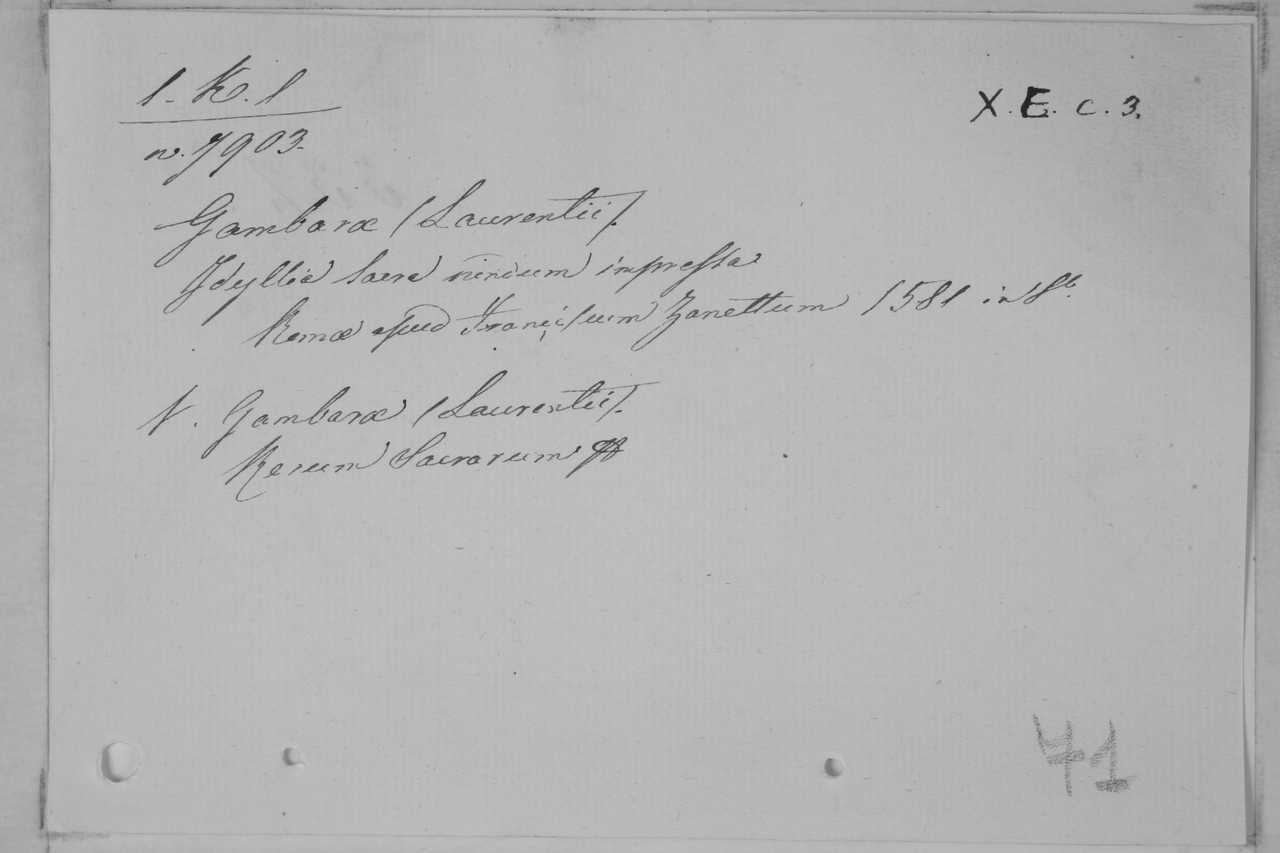 1. K. 1
X. E. c. 3.
n. 7903.
Gambaræ (Laurentii).
Idyllia Sacra impressa
Romæ apud Franciscum Zanettum 1581 in 8º.
V. Gambaræ (Laurentii).
Rerum Sacrarum
41